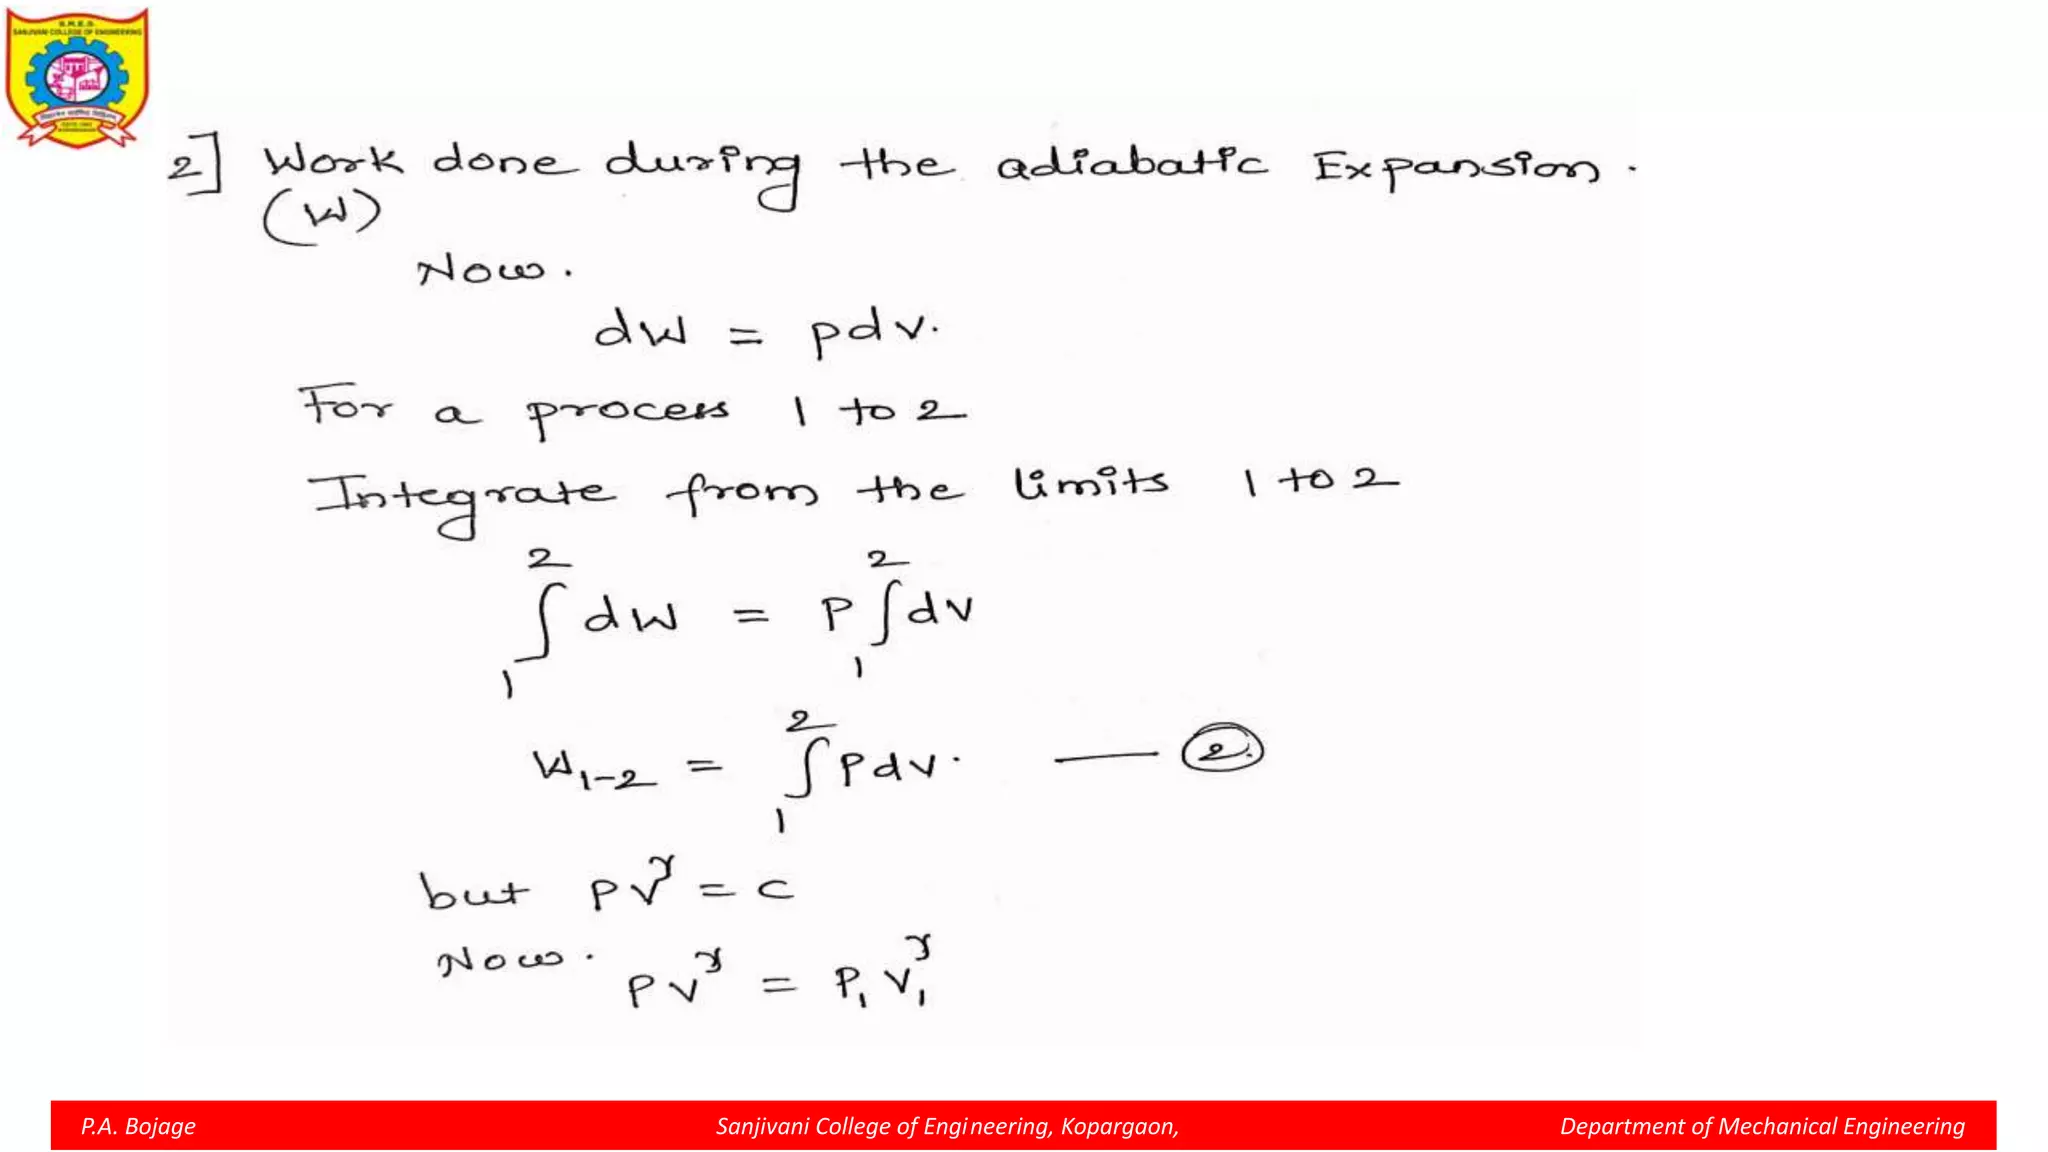 S.R.E.S.
SANJIVANI COLLEGE OF ENGINEERING
2] Work done during the adiabatic Expansion.
(W)
Now.
dW = pdv.
For a process 1 to 2
Integrate from the limits 1 to 2
∫₁² dW = P ∫₁² dv
W₁₋₂ = ∫₁² Pdv. — ②
but PV^γ = C
Now. PV^γ = P₁V₁^γ
P.A. Bojage Sanjivani College of Engineering, Kopargaon, Department of Mechanical Engineering